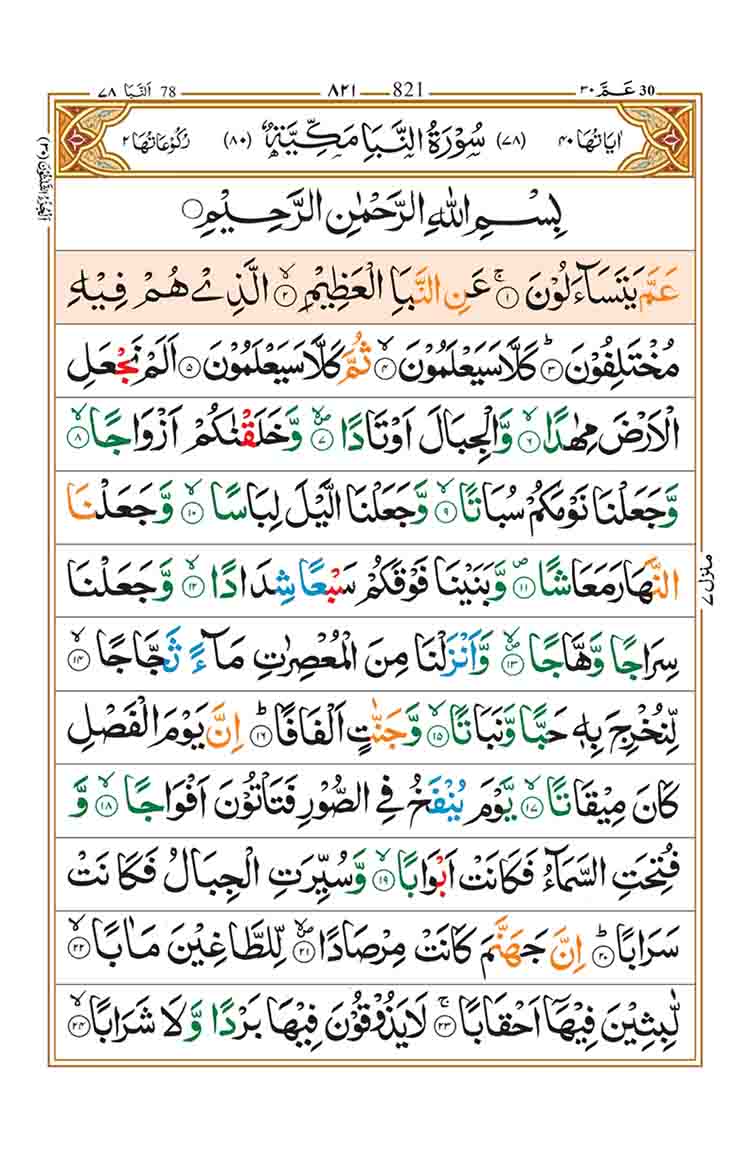 عَمَّ ٣٠ 30 821 ٨٢١ 78 اَلنَّبَا ٧٨
اٰيَاتُهَا ٤٠ (٧٨) سُوْرَةُ النَّبَاِ مَكِّيَّةٌ (٨٠) رُكُوْعَاتُهَا ٢
اَلْجُزْءُ الثَّلٰثُوْنَ (٣٠)
بِسْمِ اللهِ الرَّحْمٰنِ الرَّحِيْمِ
عَمَّ يَتَسَآءَلُوْنَ ۚ‏﴿۱﴾ عَنِ النَّبَاِ الْعَظِيْمِ ۙ‏﴿۲﴾ الَّذِيْ هُمْ فِيْهِ
مُخْتَلِفُوْنَ ؕ‏﴿۳﴾ كَلَّا سَيَعْلَمُوْنَ ۙ‏﴿۴﴾ ثُمَّ كَلَّا سَيَعْلَمُوْنَ ﴿۵﴾ اَلَمْ نَجْعَلِ
الْاَرْضَ مِهٰدًا ۙ‏﴿۶﴾ وَّالْجِبَالَ اَوْتَادًا ۪ۙ‏﴿۷﴾ وَّخَلَقْنٰكُمْ اَزْوَاجًا ۙ‏﴿۸﴾
وَّجَعَلْنَا نَوْمَكُمْ سُبَاتًا ۙ‏﴿۹﴾ وَّجَعَلْنَا الَّيْلَ لِبَاسًا ۙ‏﴿۱۰﴾ وَّجَعَلْنَا
النَّهَارَ مَعَاشًا ۪‏﴿۱۱﴾ وَّبَنَيْنَا فَوْقَكُمْ سَبْعًا شِدَادًا ۙ‏﴿۱۲﴾ وَّجَعَلْنَا
سِرَاجًا وَّهَّاجًا ۪ۙ‏﴿۱۳﴾ وَّاَنْزَلْنَا مِنَ الْمُعْصِرٰتِ مَآءً ثَجَّاجًا ۙ‏﴿۱۴﴾
لِّنُخْرِجَ بِهٖ حَبًّا وَّنَبَاتًا ۙ‏﴿۱۵﴾ وَّجَنّٰتٍ اَلْفَافًا ؕ‏﴿۱۶﴾ اِنَّ يَوْمَ الْفَصْلِ
كَانَ مِيْقَاتًا ۙ‏﴿۱۷﴾ يَّوْمَ يُنْفَخُ فِي الصُّوْرِ فَتَاْتُوْنَ اَفْوَاجًا ۙ‏﴿۱۸﴾ وَّ
فُتِحَتِ السَّمَآءُ فَكَانَتْ اَبْوَابًا ۙ‏﴿۱۹﴾ وَّسُيِّرَتِ الْجِبَالُ فَكَانَتْ
سَرَابًا ؕ‏﴿۲۰﴾ اِنَّ جَهَنَّمَ كَانَتْ مِرْصَادًا ۪ۙ‏﴿۲۱﴾ لِّلطَّاغِيْنَ مَاٰبًا ۙ‏﴿۲۲﴾
لّٰبِثِيْنَ فِيْهَآ اَحْقَابًا ۚ‏﴿۲۳﴾ لَا يَذُوْقُوْنَ فِيْهَا بَرْدًا وَّلَا شَرَابًا ۙ‏﴿۲۴﴾
منزل ٧